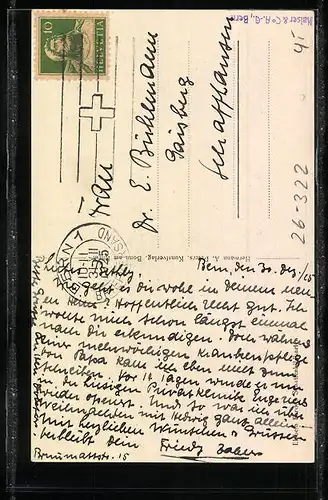 10
HELVETIA
Kaiser & Co. A.-G., Bern
45
Frau
Dr. E. Bühlmann
Gaisberg
Schaffhausen
26-322
Hermann A. Peters, Kunstverlag, Bonn am
BERN 1
1925
Bern, den 30. Dez./25
geht es dir wohl in deinem neuen
Heim? Hoffentlich recht gut. Ich
wollte mich schon längst einmal
nach dir erkundigen. Doch während
meiner mehrwöchigen Krankenpflege
von Papa kam ich eben nicht zum
schreiben. Vor 14 Tagen wurde er nun
in der hiesigen Privatklinik
wieder operiert. Und so war ich über
Weihnachten mit Hedwig ganz allein.
Mit herzlichen Wünschen & Grüssen
verbleibt dein
Friedy
Brunnmattstr. 15